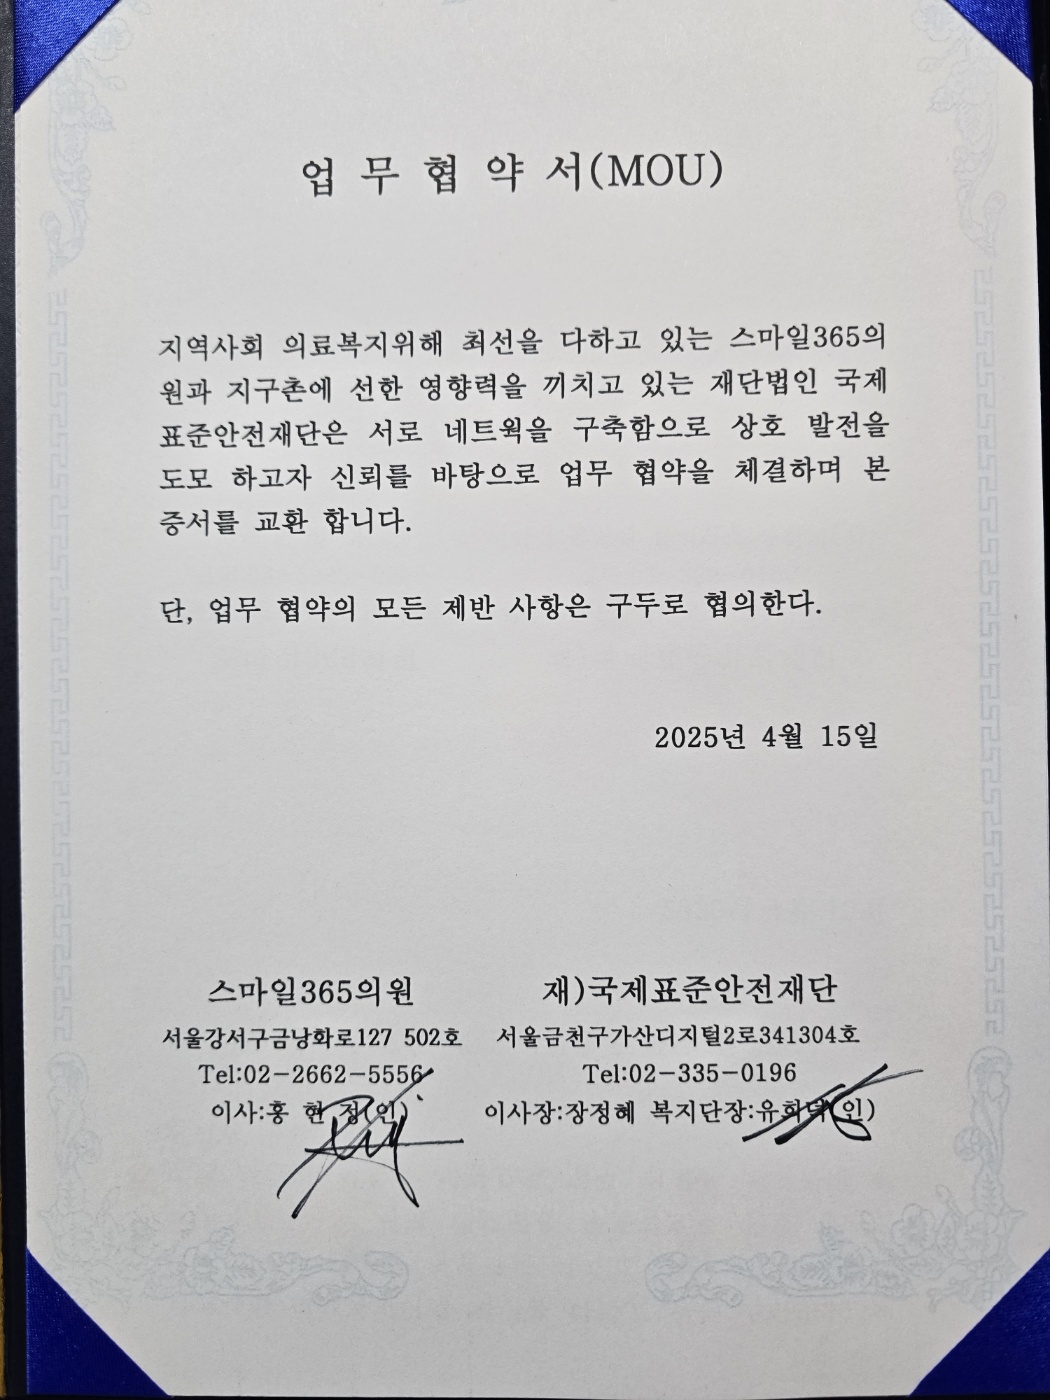 업 무 협 약 서(MOU)
지역사회 의료복지위해 최선을 다하고 있는 스마일365의
원과 지구촌에 선한 영향력을 끼치고 있는 재단법인 국제
표준안전재단은 서로 네트웍을 구축함으로 상호 발전을
도모 하고자 신뢰를 바탕으로 업무 협약을 체결하며 본
증서를 교환 합니다.
단, 업무 협약의 모든 제반 사항은 구두로 협의한다.
2025년 4월 15일
스마일365의원 재)국제표준안전재단
서울강서구금낭화로127 502호 서울금천구가산디지털2로341304호
Tel:02-2662-5556 Tel:02-335-0196
이사:홍 현 정(인) 이사장:장정혜 복지단장:유희덕(인)